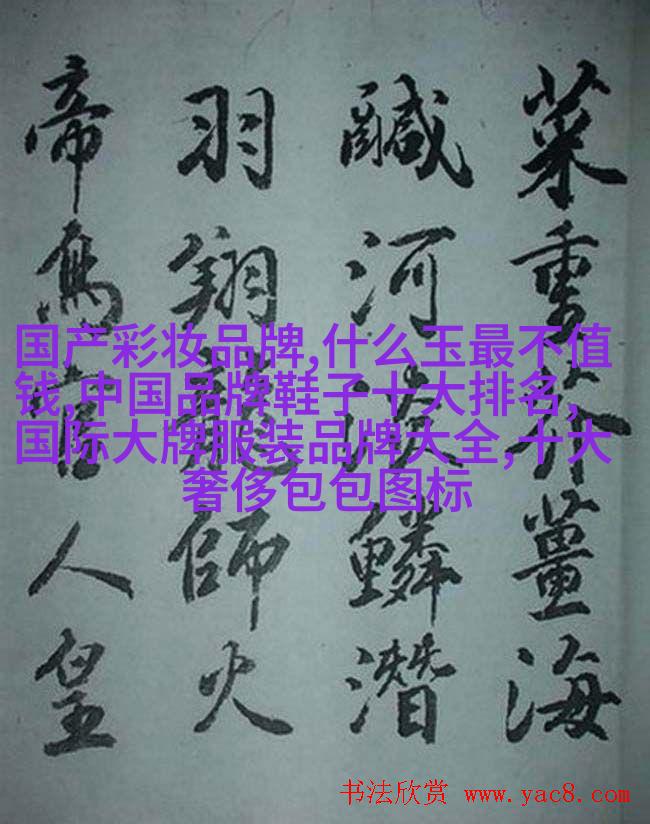 菜重芥薑海
鹹河淡鱗潛
羽翔龍師火
帝鳥官人皇
国产彩妆品牌,什么玉最不值
钱,中国品牌鞋子十大排名,
国际大牌服装品牌大全,十大
奢侈包包图标
书法欣赏 www.yac8.com